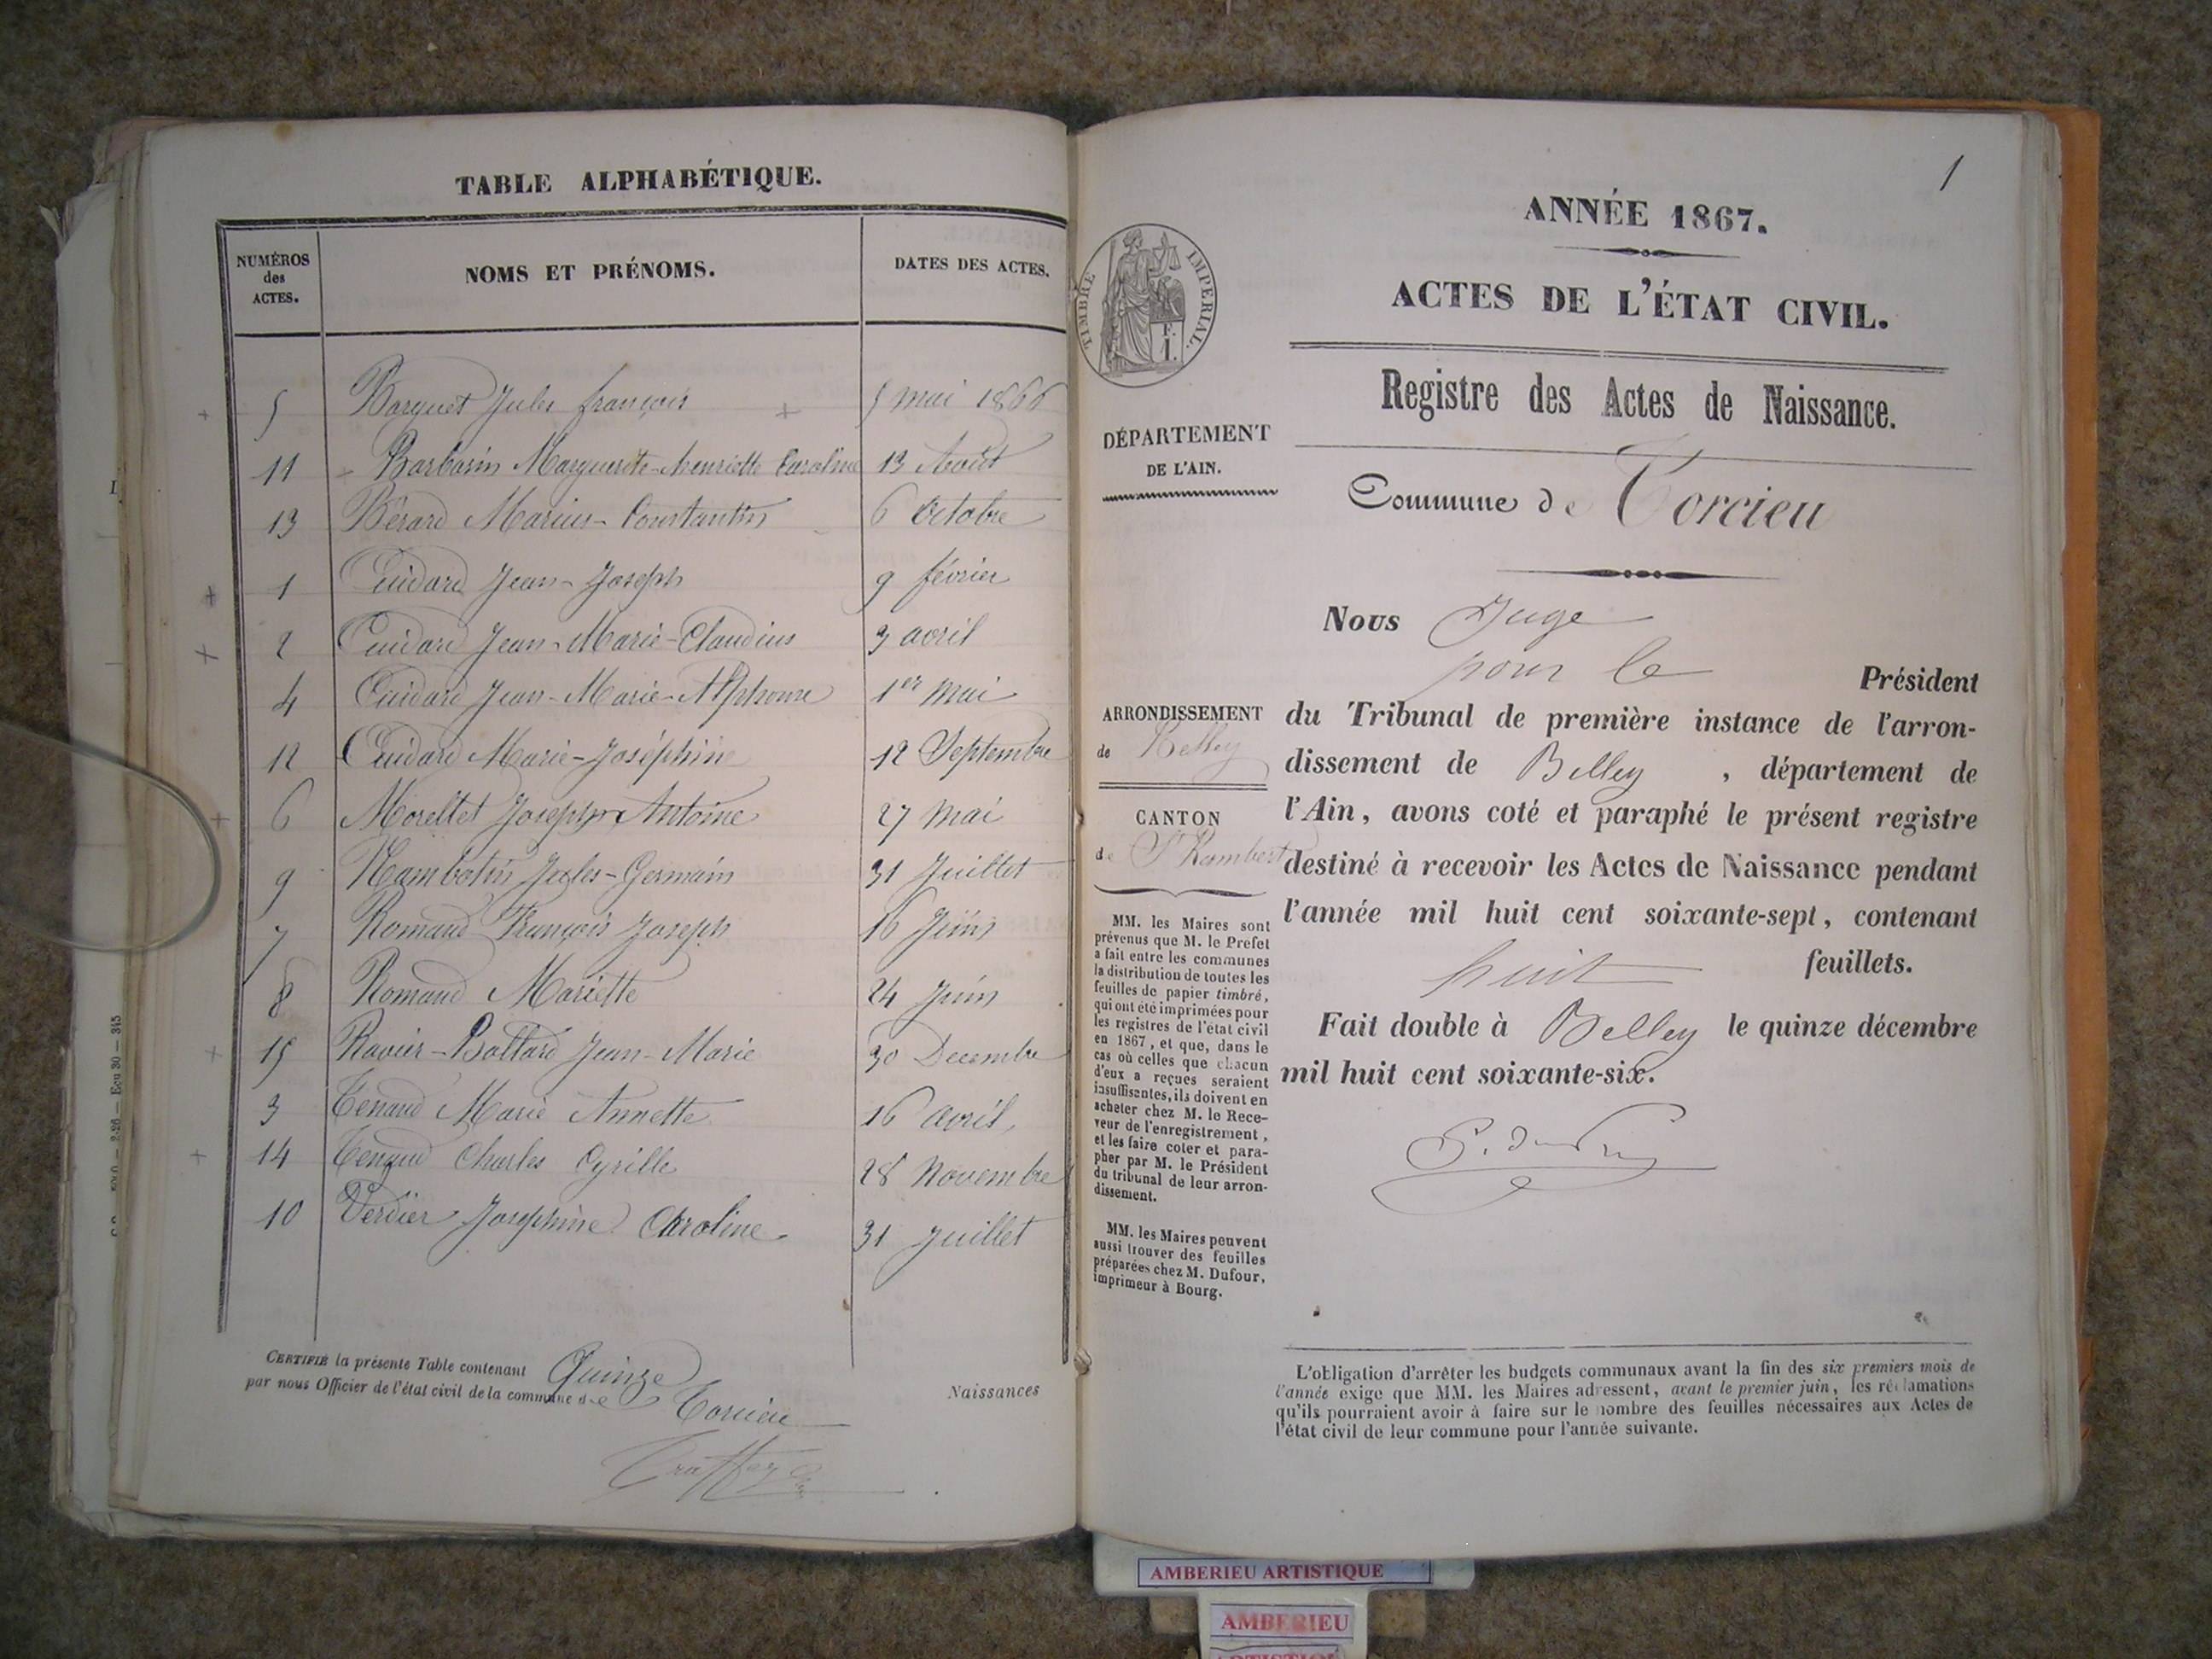 TABLE ALPHABÉTIQUE.
NUMÉROS des ACTES.
NOMS ET PRÉNOMS.
DATES DES ACTES.
5 Barquet Jules françois 5 mai 1866
11 Barbarin Marguerite-henriette Caroline 13 Août
13 Bérard Marius-Constantin 6 Octobre
1 Cuidard Jean-Joseph 9 février
2 Cuidard Jean-Marie-Claudius 3 avril
4 Cuidard Jean-Marie-Alphonse 1er Mai
12 Cuidard Marie-Joséphine 12 Septembre
6 Morellet Joseph Antoine 27 Mai
9 Nambotin Jules-Germain 31 Juillet
7 Romand François Joseph 16 Juin
8 Romand Mariette 24 Juin
15 Ravier-Bottard Jean-Marie 30 Decembre
3 Tenand Marie Annette 16 avril,
14 Tenand Charles Cyrille 28 Novembre
10 Verdier Joséphine Caroline 31 Juillet
CERTIFIÉ la présente Table contenant Quinze Naissances
par nous Officier de l'état civil de la commune de Torcieu
1
ANNÉE 1867.
ACTES DE L'ÉTAT CIVIL.
Registre des Actes de Naissance.
TIMBRE IMPERIAL.
DÉPARTEMENT
DE L'AIN.
ARRONDISSEMENT
de Belley
CANTON
de St Rambert
MM. les Maires sont
prévenus que M. le Prefet
a fait entre les communes
la distribution de toutes les
feuilles de papier timbré,
qui ont été imprimées pour
les registres de l'état civil
en 1867, et que, dans le
cas où celles que chacun
d'eux a reçues seraient
insuffisantes, ils doivent en
acheter chez M. le Rece-
veur de l'enregistrement,
et les faire coter et para-
pher par M. le Président
du tribunal de leur arron-
dissement.
MM. les Maires peuvent
aussi trouver des feuilles
préparées chez M. Dufour,
imprimeur à Bourg.
Commune de Torcieu
Nous Juge
pour le Président
du Tribunal de première instance de l'arron-
dissement de Belley, département de
l'Ain, avons coté et paraphé le présent registre
destiné à recevoir les Actes de Naissance pendant
l'année mil huit cent soixante-sept, contenant
huit feuillets.
Fait double à Belley le quinze décembre
mil huit cent soixante-six.
L'obligation d'arrêter les budgets communaux avant la fin des six premiers mois de
l'année exige que MM. les Maires adressent, avant le premier juin, les réclamations
qu'ils pourraient avoir à faire sur le nombre des feuilles nécessaires aux Actes de
l'état civil de leur commune pour l'année suivante.
AMBERIEU ARTISTIQUE
AMBERIEU
ARTISTIQUE